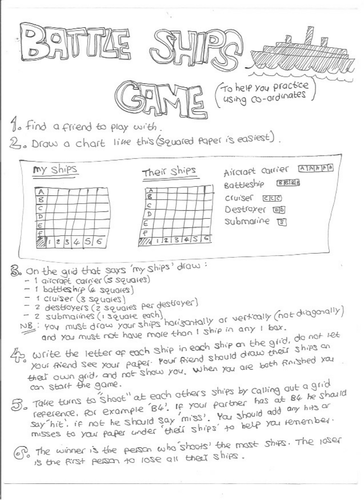 BATTLE SHIPS
GAME
(To help you practice
using co-ordinates)
1. Find a friend to play with.
2. Draw a chart like this (squared paper is easiest).
my ships
Their ships
A
B
C
D
E
F
1 2 3 4 5 6
A
B
C
D
E
F
1 2 3 4 5 6
Aircraft carrier A A A A A
Battleship B B B B
Cruiser C C C
Destroyer D D
Submarine S
3. On the grid that says 'my ships' draw:
- 1 aircraft carrier (5 squares)
- 1 battleship (4 squares)
- 1 cruiser (3 squares)
- 2 destroyers (2 squares per destroyer)
- 2 submarines (1 square each)
NB: You must draw your ships horizontally or vertically (not diagonally)
and you must not have more than 1 ship in any 1 box.
4. Write the letter of each ship in each ship on the grid, do not let
your friend see your paper. Your friend should draw their ships on
their own grid, and not show you. When you are both finished you
can start the game.
5. Take turns to "shoot" at each others ships by calling out a grid
reference. For example 'B6'. If your partner has at B6 he should
say 'hit', if not he should say 'miss'. You should add any hits or
misses to your paper under 'their ships' to help you remember.
6. The winner is the person who 'shoots' the most ships. The loser
is the first person to lose all their ships.